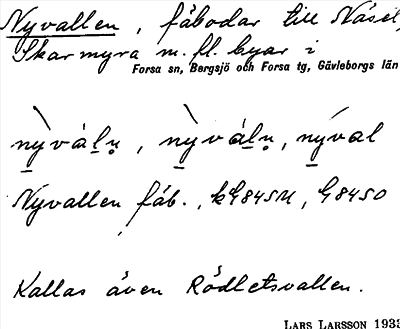 Nyvallen, fäbodar till Näset,
Skarmyra m. fl. byar i
Forsa sn, Bergsjö och Forsa tg, Gävleborgs län
nỳvàl̲n̥, nỳvàl̲n̥, nýval
Nyvallen fäb., G8450
Kallas även Rödletsvallen.
LARS LARSSON 1933